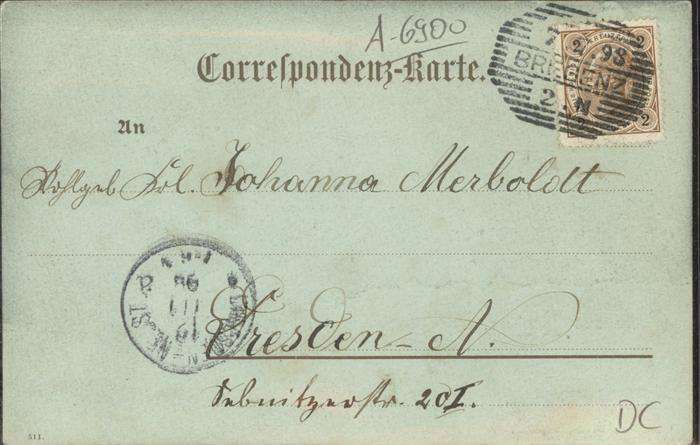 A-6900
Correspondenz-Karte.
2 KREUZER 2
98
BREGENZ
2. N
2 2
An
Wohlgeb Frl. Johanna Merboldt
Dresden-N.
Sebnitzerstr. 20I.
DC
511.